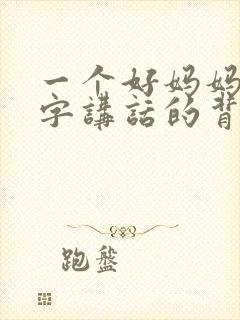 一个好妈妈
字講話的背
跑盤